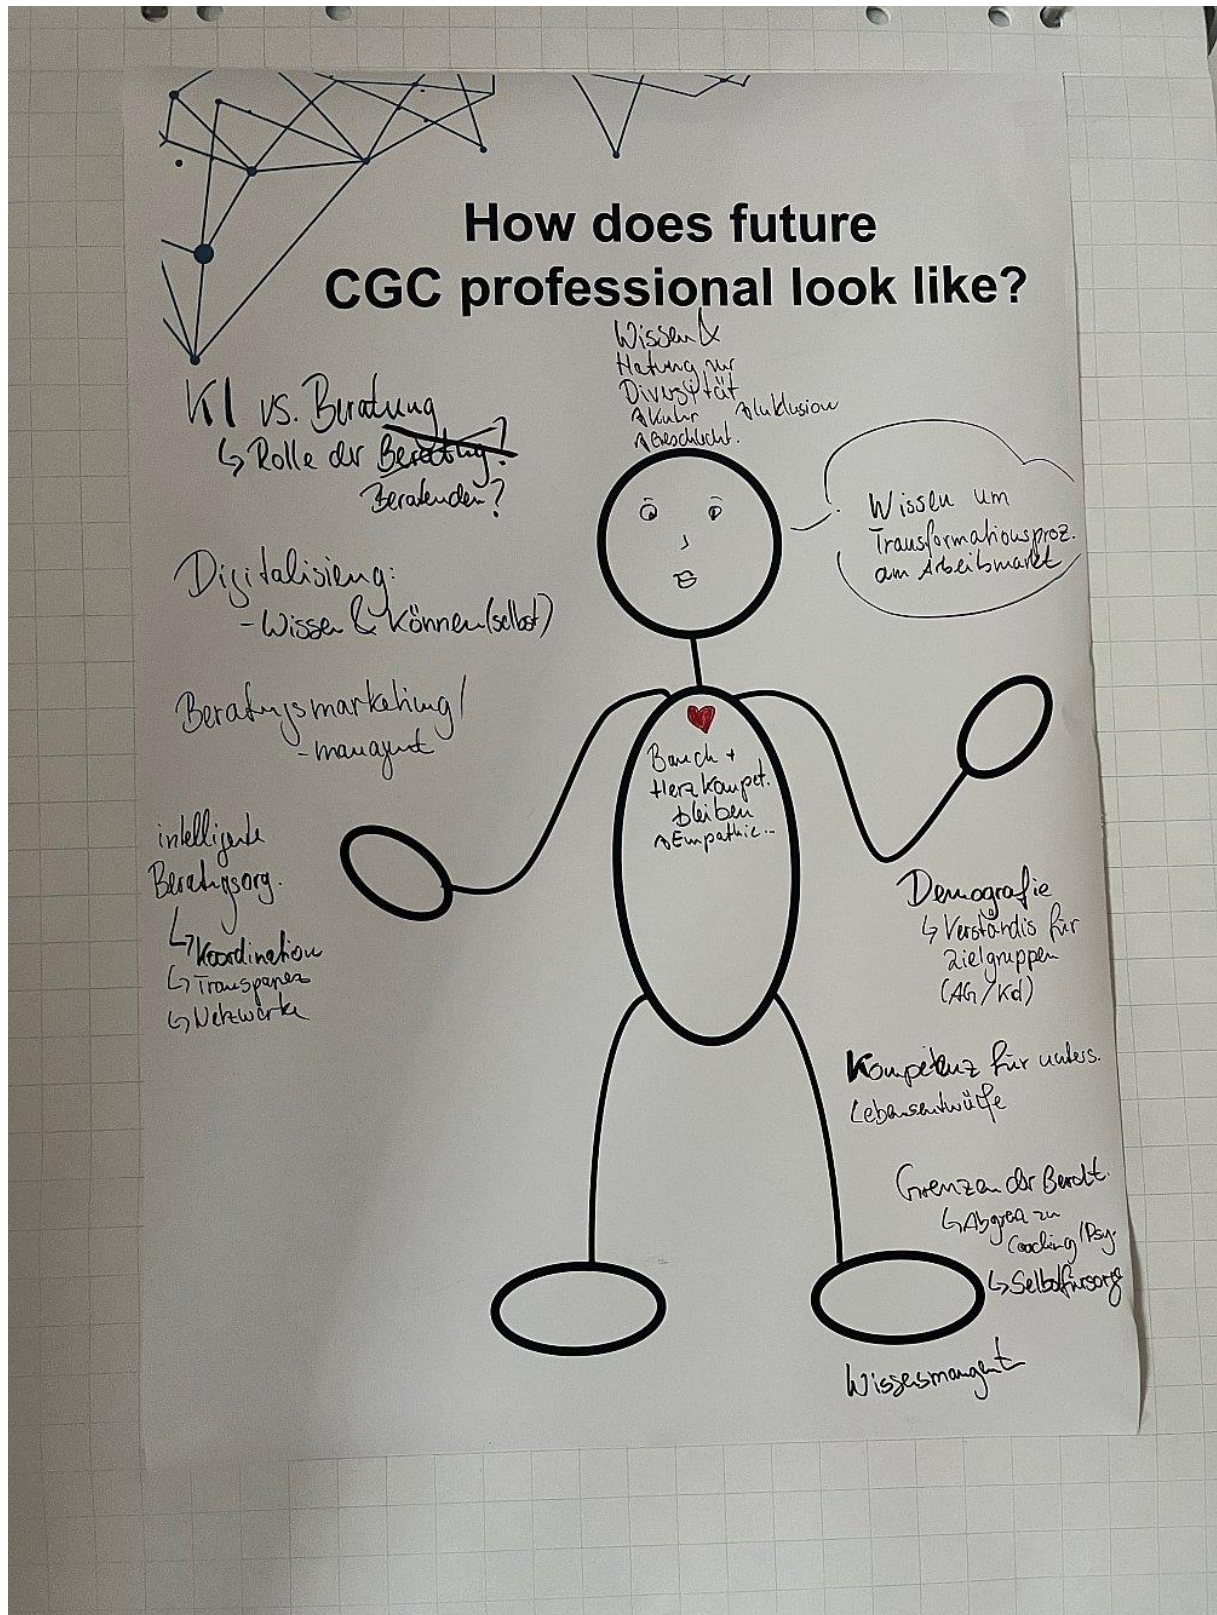 How does future
CGC professional look like?
Wissen &
Hatung zur
Diversität
↗Kultur ↗Inklusion
↗Geschlecht.
KI vs. Beratung
↳ Rolle der Beratung?
Beratenden?
Wissen um
Transformationsproz.
am Arbeitsmarkt
Digitalisierung:
- Wissen & Können (selbst)
Beratungsmarketing/
- managemt
Bauch +
Herz Kompet.
bleiben
↗Empathie...
intelligente
Beratungsorg.
↳ Koordination
↳ Transparenz
↳ Netzwerke
Demografie
↳ Verständis für
Zielgruppen
(AG/Kd)
Kompetenz für unters.
Lebensentwürfe
Grenzen der Beratt.
↳ Abgrenz zu
Coaching/Psy.
↳ Selbstfürsorge
Wissensmangent